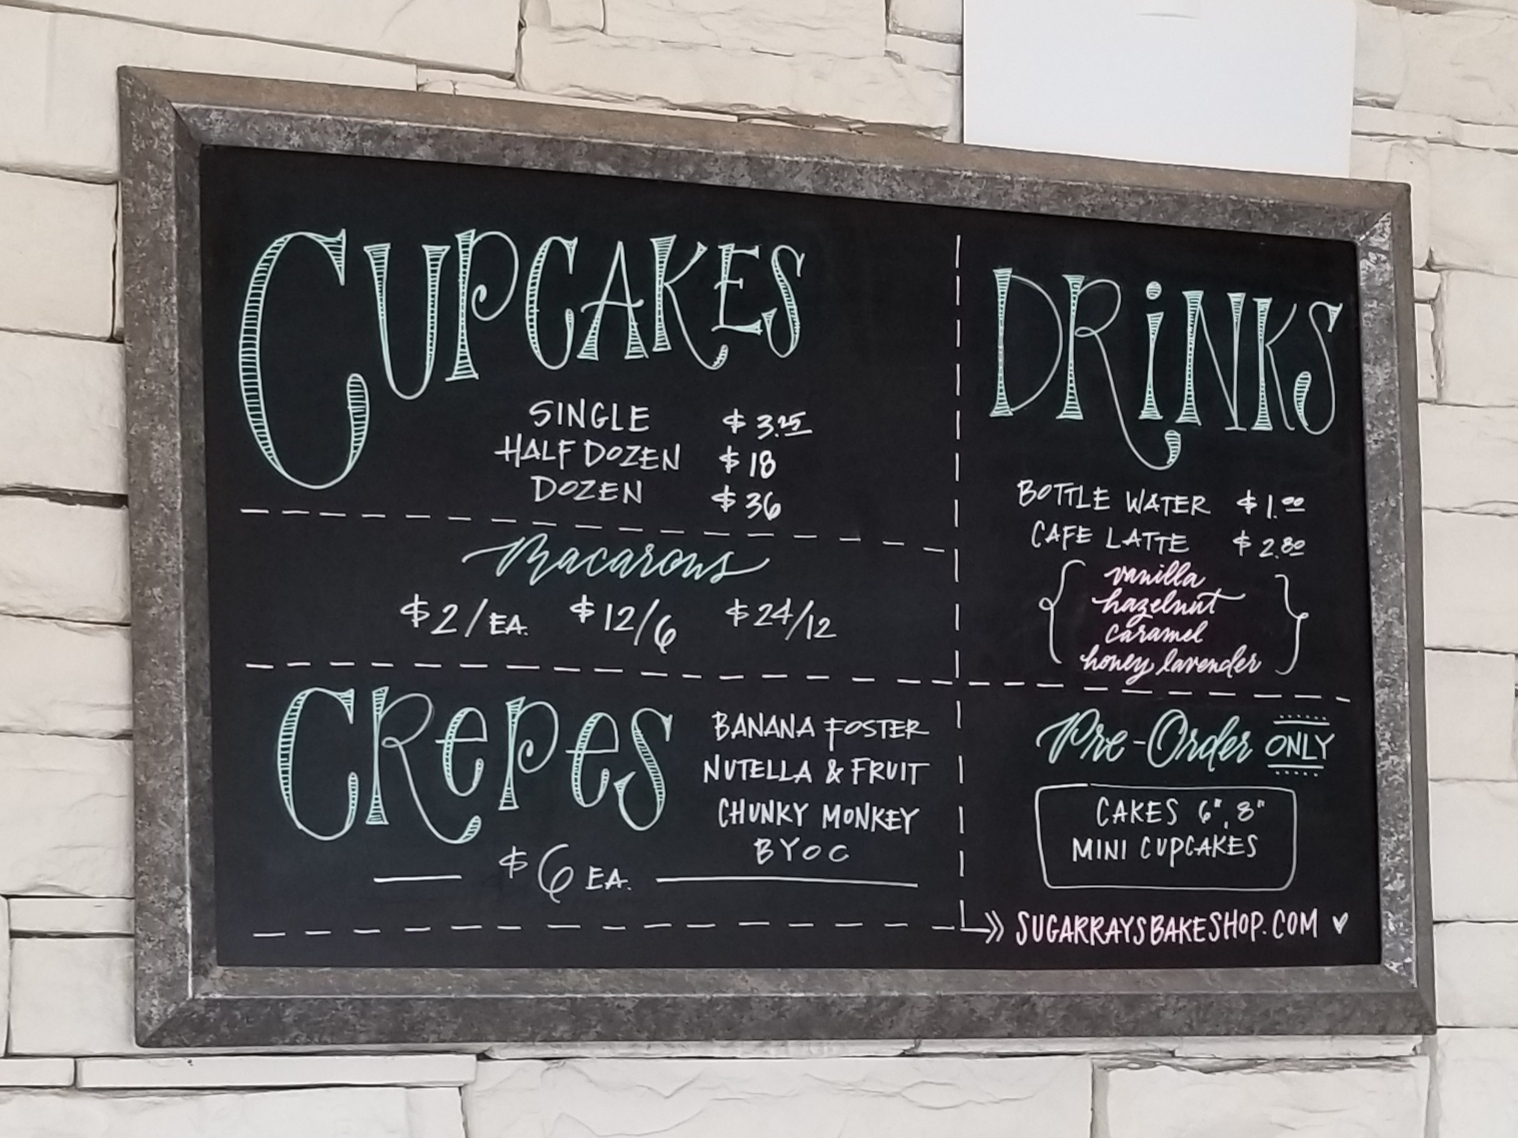 CUPCAKES
SINGLE $3.25
HALF DOZEN $18
DOZEN $36
Macarons
$2/EA. $12/6 $24/12
CREPES
BANANA FOSTER
NUTELLA & FRUIT
CHUNKY MONKEY
BYOC
$6 EA.
DRiNKS
BOTTLE WATER $1.00
CAFE LATTE $2.80
{ vanilla
hazelnut
caramel
honey lavender }
Pre-Order ONLY
CAKES 6", 8"
MINI CUPCAKES
SUGARRAYSBAKESHOP.COM ♥